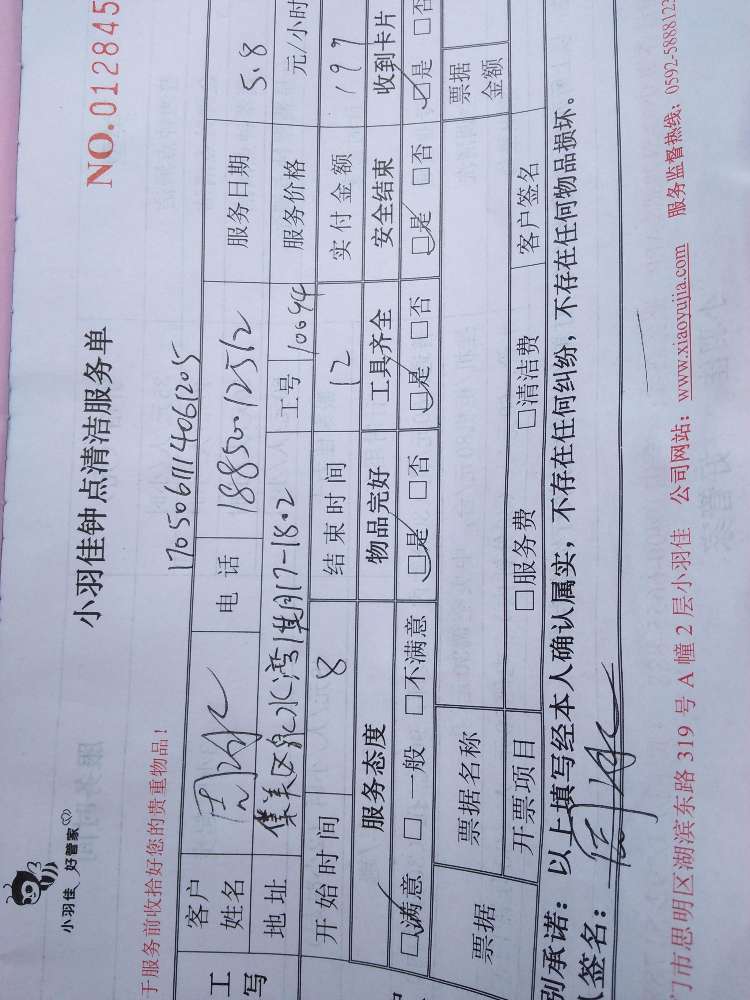 小羽佳 好管家
小羽佳钟点清洁服务单
NO.012845
于服务前收拾好您的贵重物品！
1705061114061205
客户姓名 电话 18850012512 服务日期 5.8
地址 集美区 水湾 17-1802 工号 10694 服务价格 元/小时
开始时间 8 结束时间 12 实付金额 199
服务态度 物品完好 工具齐全 安全结束 收到卡片
□满意 □一般 □不满意 □是 □否 □是 □否 □是 □否 □是 □否
票据 票据名称 票据金额
开票项目 □服务费 □清洁费 客户签名
别承诺：以上填写经本人确认属实，不存在任何纠纷，不存在任何物品损坏。
签名：
门市思明区湖滨东路 319 号 A 幢 2 层小羽佳 公司网站：www.xiaoyujia.com 服务监督热线：0592-5888122
工
写